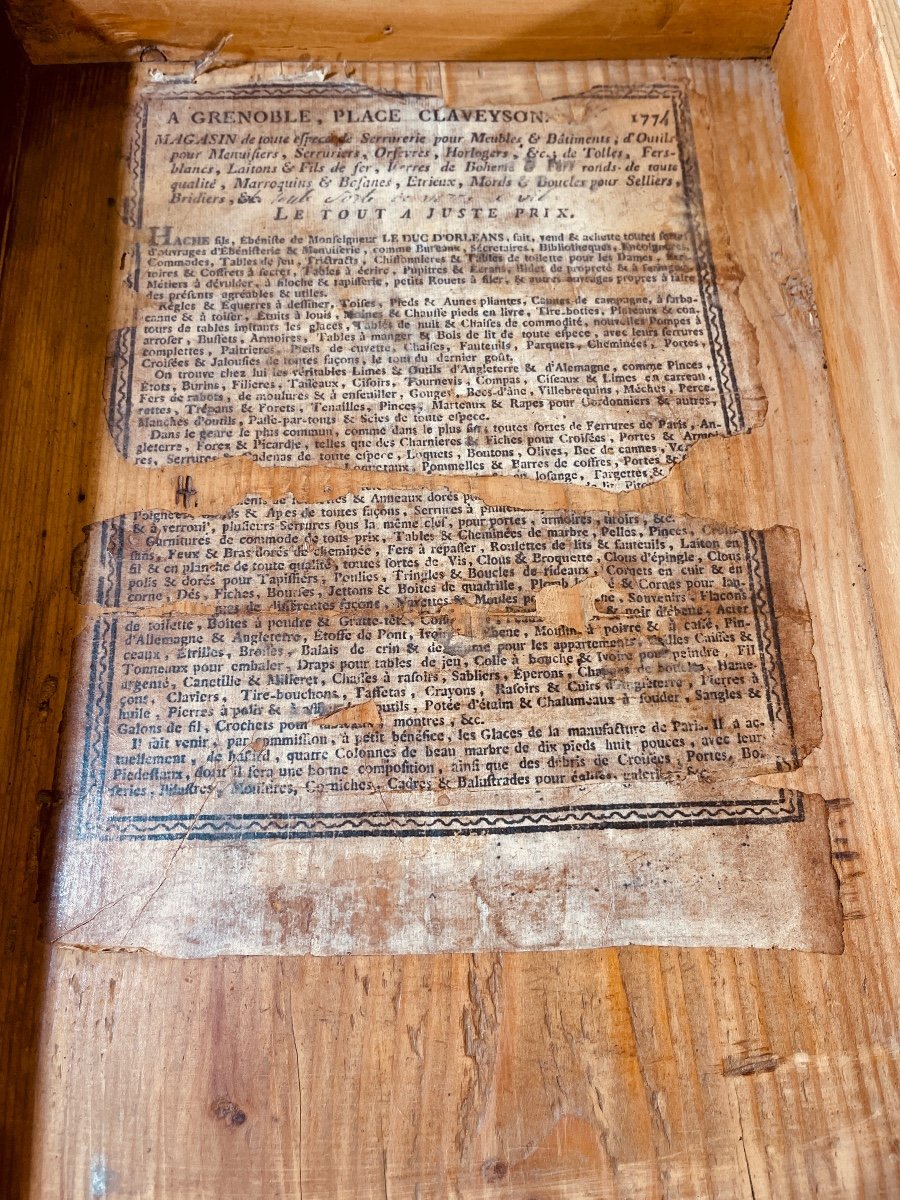 A GRENOBLE, PLACE CLAVEYSON. 1774
MAGASIN de toute espece de Serrurerie pour Meubles & Bâtiments, d'Outils
pour Menuisiers, Serruriers, Orfevres, Horlogers, &c.; de Tolles, Fers-
blancs, Laitons & Fils de fer, Verres de Boheme & Fers ronds de toute
qualité, Marroquins & Basanes, Etrieux, Mords & Boucles pour Selliers,
Bridiers, &c. toute sorte de
LE TOUT A JUSTE PRIX.
HACHE fils, Ébéniste de Monseigneur LE DUC D'ORLEANS, fait, vend & achette toutes sortes
d'ouvrages d'Ébénisterie & Menuiserie, comme Bureaux, Sécretaires, Bibliotheques, Encoignures,
Commodes, Tables de jeu, Trictracts, Chiffonnieres & Tables de toilette pour les Dames, Ecri-
toires & Coffrets à secret, Tables à écrire, Pupitres & Ecrans, Bidet de propreté & à seringue,
Métiers à dévulder, à filoche & tapisserie, petits Rouets à filer, & autres ouvrages propres à faire
des présents agréables & utiles.
Regles & Équerres à dessiner, Toises, Pieds & Aunes pliantes, Cannes de campagne, à sarba-
canne & à toiser, Étuits à louis, & Chausse pieds en livre, Tire-bottes, Plateaux & con-
tours de tables imitants les glaces, Tables de nuit & Chaises de commodité, nouvelles Pompes à
arroser, Buffets, Armoires, Tables à manger & Bois de lit de toute espece, avec leurs ferrures
complettes, Paitrieres, Pieds de cuvette, Chaises, Fauteuils, Parquets, Cheminées, Portes,
Croisées & Jalousies de toutes façons, le tout du dernier goût.
On trouve chez lui les véritables Limes & Outils d'Angleterre & d'Alemagne, comme Pinces,
Étots, Burins, Filieres, Tailleaux, Cisoirs, Tournevis, Compas, Ciseaux & Limes en carreau,
Fers de rabots, de moulures & à enfeuiller, Gouges, Becs-d'âne, Villebrequins, Méches, Perce-
rettes, Trépans & Forets, Tenailles, Pinces, Marteaux & Rapes pour Cordonniers & autres,
Manches d'outils, Passe-par-touts & Scies de toute espece.
Dans le genre le plus commun, comme dans le plus fin, toutes sortes de Ferrures de Paris, An-
gleterre, Forez & Picardie, telles que des Charnieres & Fiches pour Croisées, Portes & Armoi-
res, Serrures & Cadenas de toute espece, Loquets, Boutons, Olives, Bec de cannes,
Loquetaux, Pommelles & Barres de coffres, Portes &
losange, Targettes, &
& Anneaux dorés
Poignées & Apes de toutes façons, Serrures à
& à verroni', plusieurs Serrures sous la même clef, pour portes, armoires, tiroirs, &c.
Garnitures de commode de tous prix, Tables & Cheminées de marbre, Pelles, Pinces,
sans, Feux & Bras dorés de cheminée, Fers à répasser, Roulettes de lits & fauteuils, Laiton en
fil & en planche de toute qualité, toutes sortes de Vis, Clous & Broquette, Clous d'épingle, Clous
polis & dorés pour Tapissiers, Poulies, Tringles & Boucles de rideaux, Cornets en cuir & en
corne, Dés, Fiches, Bourses, Jettons & Boites de quadrille, & Cornes pour lan-
de différentes façons, Navettes & Moules Souvenirs, Flacons
de toilette, Boites à poudre & Gratte-tête, & noir d'ébene, Acier
d'Allemagne & Angleterre, Étoffe de Pont, Moulin à poivre & à caffé, Pin-
ceaux, Étrilles, Brosses, Balais de crin & de pour les appartements, Caisses &
Tonneaux pour embaler, Draps pour tables de jeu, Colle à bouche & Ivoire pour peindre, Fil
argenté, Canetille & Milleret, Chaises à rasoirs, Sabliers, Éperons, de boucles, Hame-
çons, Claviers, Tire-bouchons, Taffetas, Crayons, Rasoirs & Cuirs d'Angleterre, Pierres à
huile, Pierres à polir & à outils, Potée d'étaim & Chalumeaux à souder, Sangles &
Galons de fil, Crochets pour montres, &c.
Il fait venir, par commission, à petit bénéfice, les Glaces de la manufacture de Paris. Il a ac-
tuellement, de hasard, quatre Colonnes de beau marbre de dix pieds huit pouces, avec leur
Piedestaux, dont il fera une bonne composition, ainsi que des débris de Croisées, Portes, Boi-
series, Pilastres, Moulures, Corniches, Cadres & Balustrades pour églises, galeries, &c.